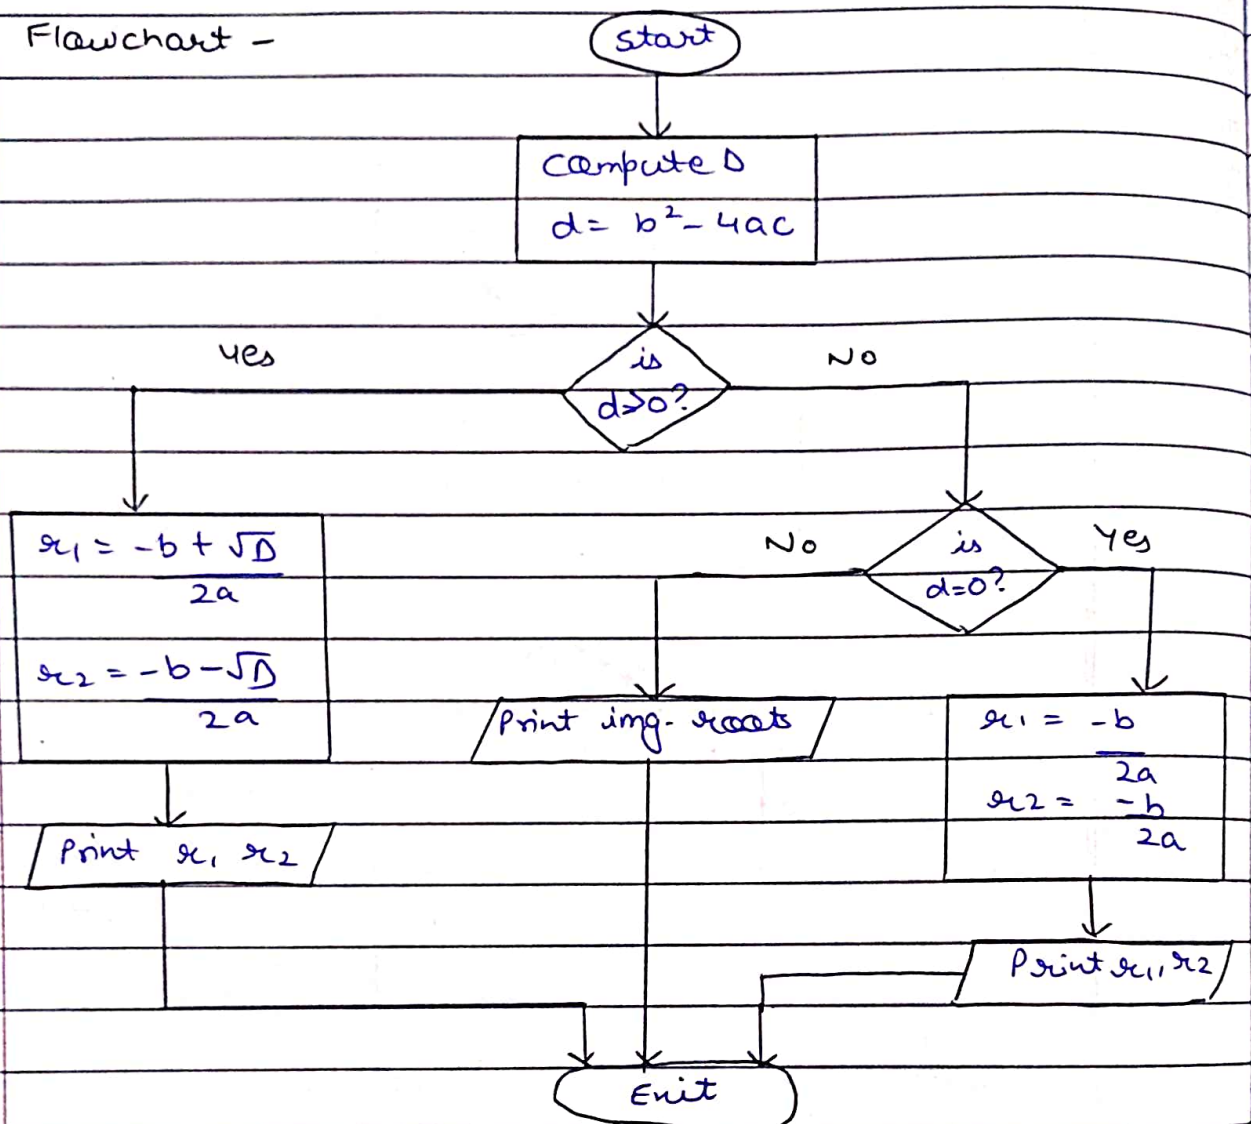 Flowchart -
Start
Compute D
d = b² - 4ac
is
d>0?
Yes
No
r1 = -b + √D
2a
r2 = -b - √D
2a
Print r1 r2
is
d=0?
No
Yes
Print img. roots
r1 = -b
2a
r2 = -b
2a
Print r1, r2
Exit